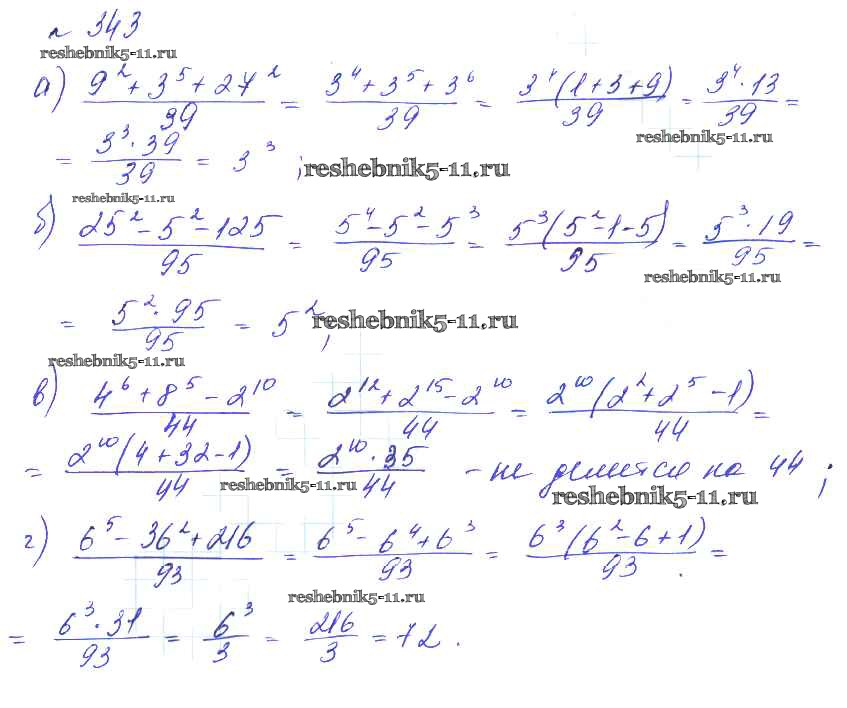 № 343
reshebnik5-11.ru
а) (9² + 3⁵ + 27²)/39 = (3⁴ + 3⁵ + 3⁶)/39 = 3⁴(1+3+9)/39 = (3⁴ · 13)/39 =
reshebnik5-11.ru
= (3³ · 39)/39 = 3³ ; reshebnik5-11.ru
reshebnik5-11.ru
б) (25² - 5² - 125)/95 = (5⁴ - 5² - 5³)/95 = 5³(5² - 1 - 5)/95 = (5³ · 19)/95 =
reshebnik5-11.ru
= (5² · 95)/95 = 5² ; reshebnik5-11.ru
reshebnik5-11.ru
в) (4⁶ + 8⁵ - 2¹⁰)/44 = (2¹² + 2¹⁵ - 2¹⁰)/44 = 2¹⁰(2² + 2⁵ - 1)/44 =
= 2¹⁰(4 + 32 - 1)/44 = (2¹⁰ · 35)/44 - не делится на 44 ;
reshebnik5-11.ru
reshebnik5-11.ru
г) (6⁵ - 36² + 216)/93 = (6⁵ - 6⁴ + 6³)/93 = 6³(6² - 6 + 1)/93 =
reshebnik5-11.ru
= (6³ · 31)/93 = 6³/3 = 216/3 = 72.